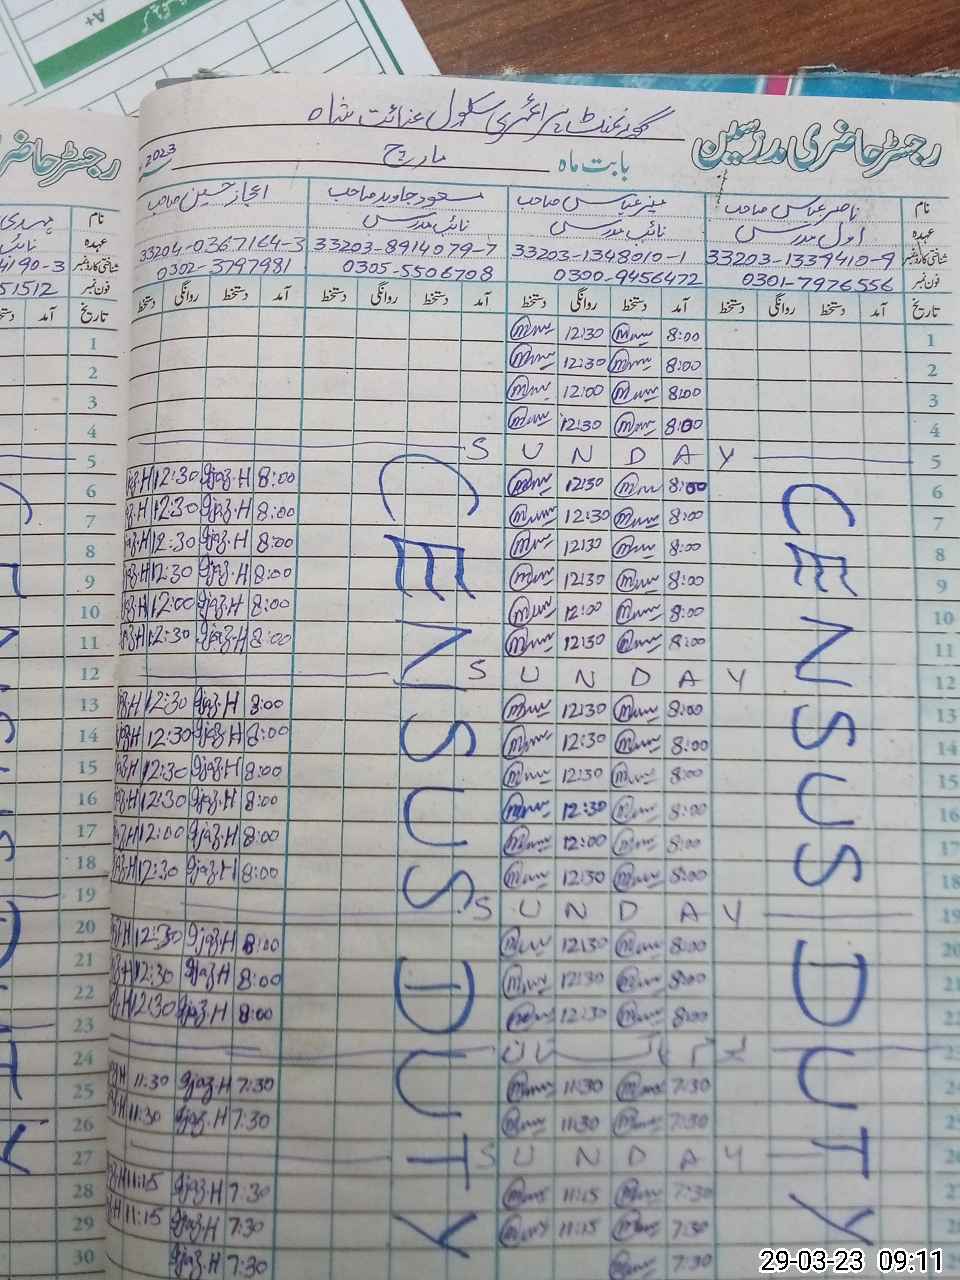 A+
رجسٹر حاضری مدرسین
گورنمنٹ پرائمری سکول عنائت شاہ
بابت ماہ مارچ 2023
نام ناصر عباس صاحب منیر عباس صاحب مسعود جاوید صاحب اعجاز حسین صاحب
عہدہ اول مدرس نائب مدرس نائب مدرس
شناختی کارڈ نمبر 33203-1339410-9 33203-1348010-1 33203-8914079-7 33204-0367164-3
فون نمبر 0301-7976556 0300-9456472 0305-5506708 0302-3797981
تاریخ آمد دستخط روانگی دستخط آمد دستخط روانگی دستخط آمد دستخط روانگی دستخط آمد دستخط روانگی دستخط
1 8:00 12:30
2 8:00 12:30
3 8:00 12:00
4 8:00 12:30
5 SUNDAY
6 8:00 12:30 8:00 Ijaz.H 12:30
7 8:00 12:30 8:00 Ijaz.H 12:30
8 8:00 12:30 8:00 Ijaz.H 12:30
9 8:00 12:30 8:00 Ijaz.H 12:30
10 8:00 12:00 8:00 Ijaz.H 12:00
11 8:00 12:30 8:00 Ijaz.H 12:30
12 SUNDAY
13 8:00 12:30 8:00 Ijaz.H 12:30
14 8:00 12:30 8:00 Ijaz.H 12:30
15 8:00 12:30 8:00 Ijaz.H 12:30
16 8:00 12:30 8:00 Ijaz.H 12:30
17 8:00 12:00 8:00 Ijaz.H 12:00
18 8:00 12:30 8:00 Ijaz.H 12:30
19 SUNDAY
20 8:00 12:30 8:00 Ijaz.H 12:30
21 8:00 12:30 8:00 Ijaz.H 12:30
22 8:00 12:30 8:00 Ijaz.H 12:30
23
24 7:30 11:30 7:30 Ijaz.H 11:30
25 7:30 11:30 7:30 Ijaz.H 11:30
26 SUNDAY
27 7:30 11:15 7:30 Ijaz.H 11:15
28 7:30 11:15 7:30 Ijaz.H 11:15
29 7:30 7:30 Ijaz.H
30
CENSUS DUTY
CENSUS DUTY
رجسٹر حاضری
4190-3
51512
تاریخ آمد
29-03-23 09:11